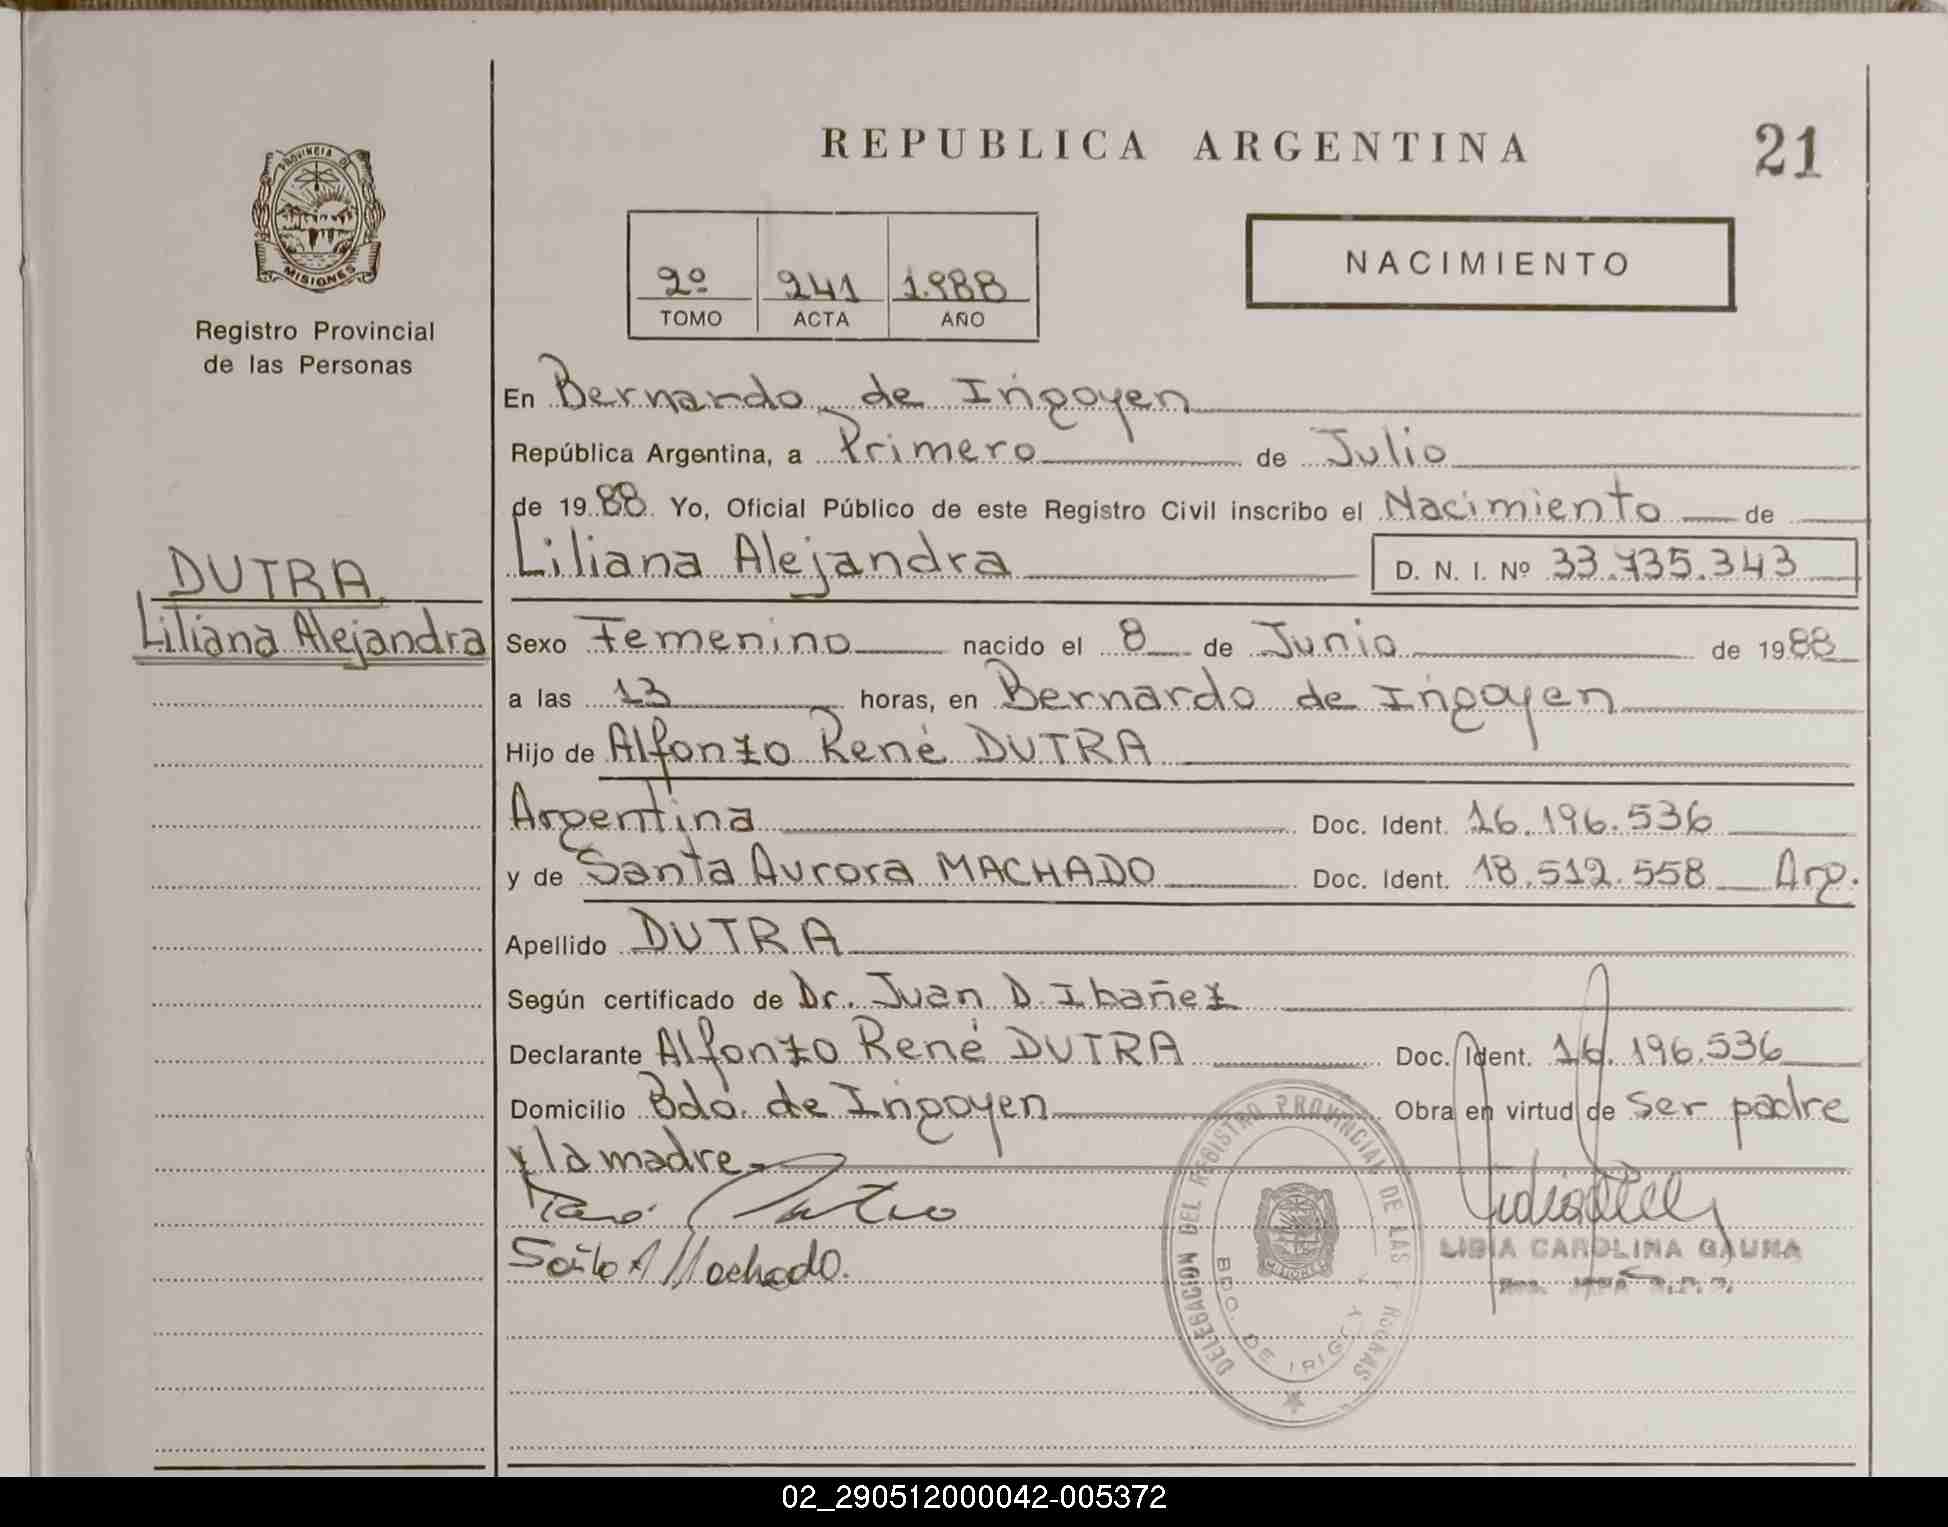 REPUBLICA ARGENTINA
21
PROVINCIA DE
MISIONES
Registro Provincial
de las Personas
2º 241 1.988
TOMO ACTA AÑO
NACIMIENTO
En Bernardo de Irigoyen
República Argentina, a Primero de Julio
de 1988 Yo, Oficial Público de este Registro Civil inscribo el Nacimiento de
Liliana Alejandra D. N. I. Nº 33.735.343
DUTRA
Liliana Alejandra
Sexo Femenino nacido el 8 de Junio de 1988
a las 13 horas, en Bernardo de Irigoyen
Hijo de Alfonzo René DUTRA
Argentina Doc. Ident. 16.196.536
y de Santa Aurora MACHADO Doc. Ident. 18.512.558 Arg.
Apellido DUTRA
Según certificado de Dr. Juan D. Ibañez
Declarante Alfonzo René DUTRA Doc. Ident. 16.196.536
Domicilio Bdo. de Irigoyen Obra en virtud de ser padre
y la madre
Machado.
DELEGACION DEL REGISTRO PROVINCIAL DE LAS
BDO. DE IRIGOY
MISIONES
LIDIA CAROLINA GAUNA
02_290512000042-005372